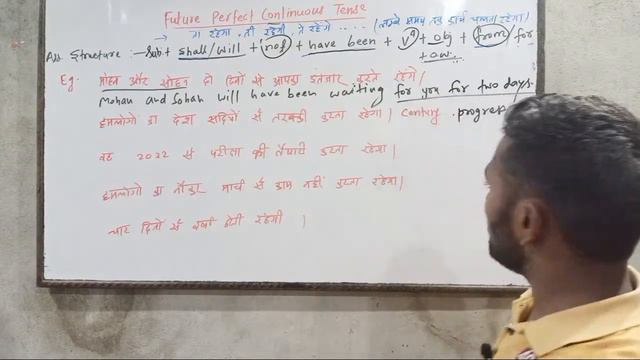 Future Perfect Continuous Tense
→ ता रहेगा, ती रहेगी, ते रहेंगे ..... (लम्बे समय तक कार्य चलता रहेगा)
Ass Structure :- Sub + shall/will + not + have been + V⁴ + obj + from/for
+ ow..
Eg. मोहन और सोहन दो दिनों से आपका इंतजार करते रहेंगे।
Mohan and Sohan will have been waiting for you for two days.
हमलोगो का देश सदियों से तरक्की करता रहेगा। Century, progress
वह 2022 से परीक्षा की तैयारी करता रहेगा।
हमलोगो का नौकर मार्च से काम नहीं करता रहेगा।
चार दिनों से वर्षा होती रहेगी ।